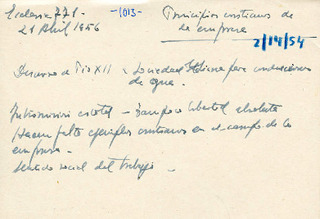 Ecclesia 771 -1013- Principios cristianos de
21 Abril 1956 la empresa
2/14/54
Discurso de Pío XII a Sociedad Italiana para conducciones
de agua.
estatal - Tampoco libertad absoluta
Hacen falta ejemplos cristianos en el campo de la
empresa.
Sentido social del trabajo.